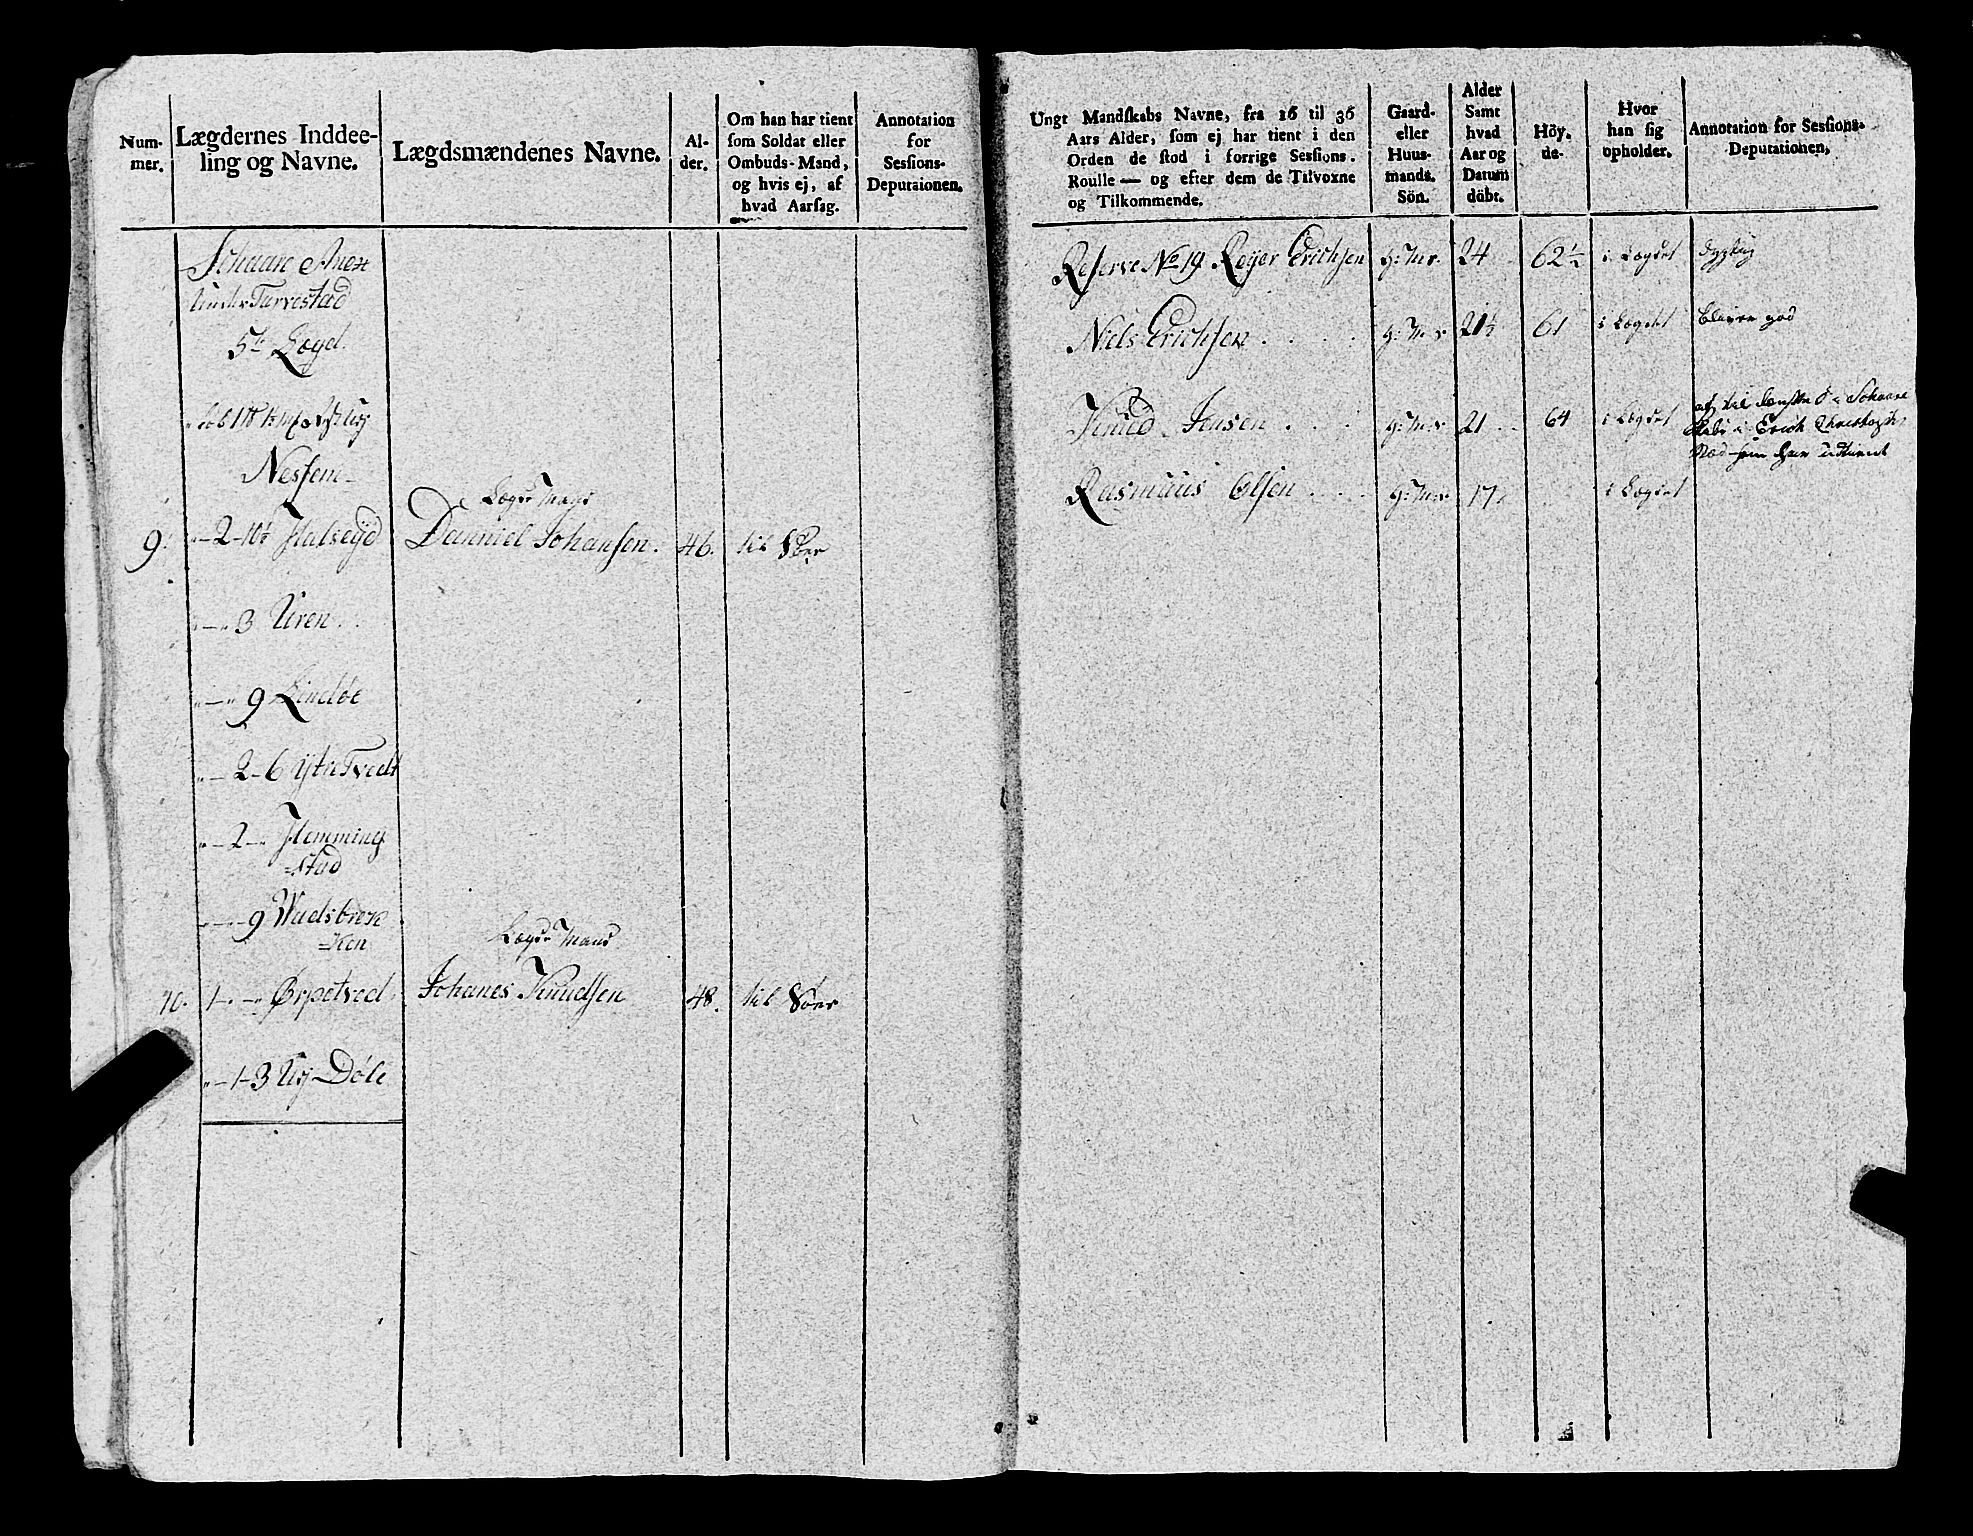 Num-
mer.
Lægdernes Inddee-
ling og Navne.
Lægdsmændenes Navne.
Al-
der.
Om han har tient
som Soldat eller
Ombuds-Mand,
og hvis ej, af
hvad Aarsag.
Annotation
for
Sessions-
Deputaionen.
Under Tarvestad
5te Lægd.
Nessem
Lægds Mand
9. 2-10½ Halseijd Danniel Johansen. 46. til Søes
3 Uren
9 Lindøe
2-6 Ytre Tvedt
2 Flemming
stad
9
Lægds Mand
10. 1 Ørpetved Johanes Knudsen 48. til Søes
1-3 Døle
Ungt Mandskabs Navne, fra 16 til 36
Aars Alder, som ej har tient i den
Orden de stod i forrige Sessions.
Roulle — og efter dem de Tilvoxne
og Tilkommende.
Gaard-
eller
Huus-
mands.
Sön.
Alder
Samt
hvad
Aar og
Datum
döbt.
Höy.
de.
Hvor
han sig
opholder.
Annotation for Sessions-
Deputationen.
Reserve No 19 Reijer Erichsen 24 62½ i Lægdet dygtig
Niels Erichsen 21½ 61 i Lægdet bliver god
Knud Jensen 21 64 i Lægdet
Rasmuus Olsen 17. i Lægdet